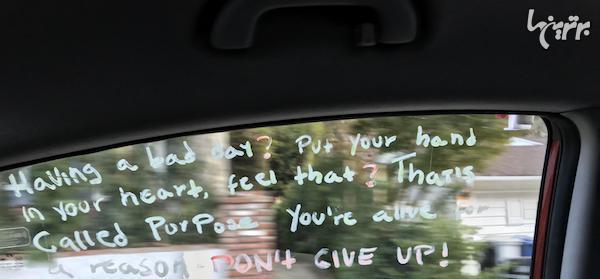 برترینها
Having a bad day? Put your hand
in your heart, feel that? That's
Called PurPose You're alive for
a reason DON't GIVE UP!